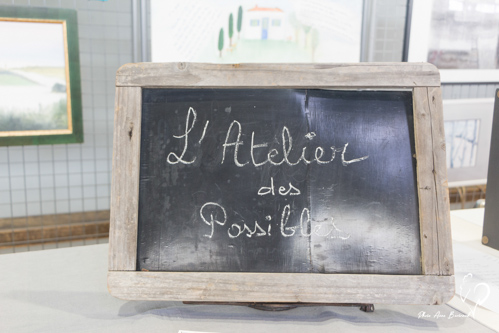 L'Atelier
des
Possibles